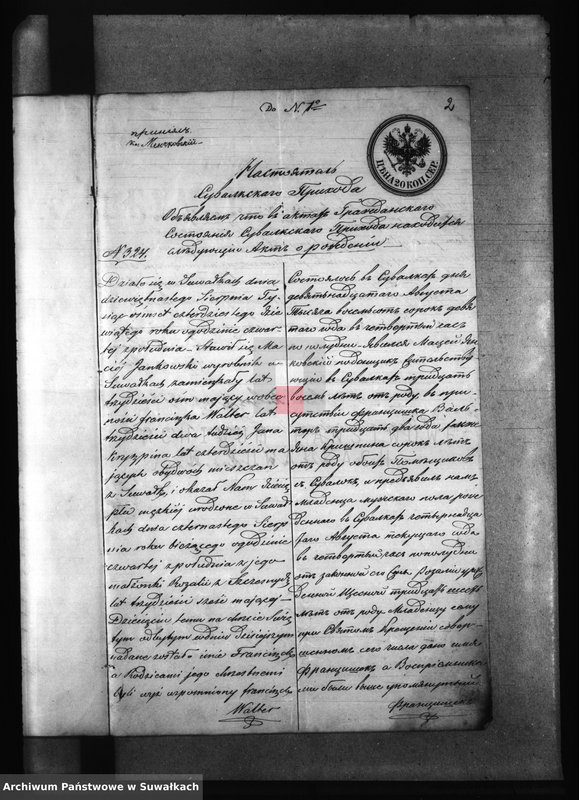 До N. 1º
2
принялъ
Кн Мичковскій
ЦѢНА 20 КОП. СЕР.
Настоятель
Сувалкскаго Прихода
Объявляетъ что въ актахъ Гражданскаго
Состоянія Сувалкскаго Прихода находится
слѣдующій Актъ о рожденіи
N 324.
Działo się w Suwałkach dnia
dziewiętnastego Sierpnia Ty-
siąc ośmset czterdziestego Dzie
wiątego roku o godzinie czwar
tej z południa. Stawił się Ma
ciej Jankowski wyrobnik w
Suwałkach zamieszkały lat
trzydzieści ośm mający w obec
ności Franciszka Walter lat
trzydzieści dwa tudzież Jana
Kryszpina lat czterdzieści ma
jących obydwóch mieszczan
z Suwałk, i okazał Nam Dziec
płci męzkiej urodzone w Suwał
kach dnia czternastego Sierp
nia roku bieżącego o godzinie
czwartej z południa z jego
małżonki Rozalii z
lat trzydzieści sześć mającej.
Dziecięciu temu na chrzcie Świę
tym odbytym w dniu dzisiejszym
nadane zostało imie Franciszek
a Rodzicami jego chrzestnemi
byli wyż wspomniony Franciszek
Walter
Состоялось въ Сувалкахъ дня
девятнадцатаго Августа
Тысяча восемьсотъ сорокъ девя
таго года въ четвертый часъ
по полудни. Явился Мацей Ян
ковскій поденщикъ жительству
ющій въ Сувалкахъ тридцать
восемь лѣтъ отъ роду, въ при
сутствіи Францишка Валь
теръ тридцать два года, также
Яна Кришпина сорокъ лѣтъ
отъ роду обоихъ
съ Сувалокъ, и предъявилъ намъ
младенца мужескаго пола рож
деннаго въ Сувалкахъ четырнадца
таго Августа текущаго года
въ четвертый часъ пополудни
отъ законной его Супр. Розаліи урож
денной тридцать шесть
лѣтъ отъ роду. Младенцу сему
при Святомъ Крещеніи совер
шенномъ сего числа дано имя
Францишекъ а Воспріемника
ми были выше упомянутый
Францишекъ
Archiwum Państwowe w Suwałkach